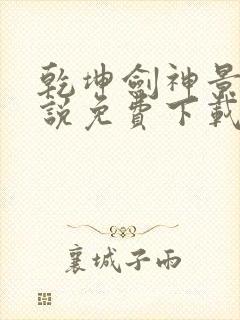 乾坤劍神景
說免費下載
襄城子雨